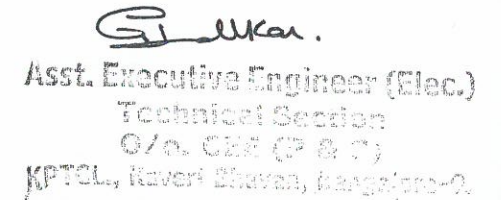 Asst. Executive Engineer (Elec.)
Technical Section
O/o. CEE (P & C)
KPTCL., Kaveri Bhavan,